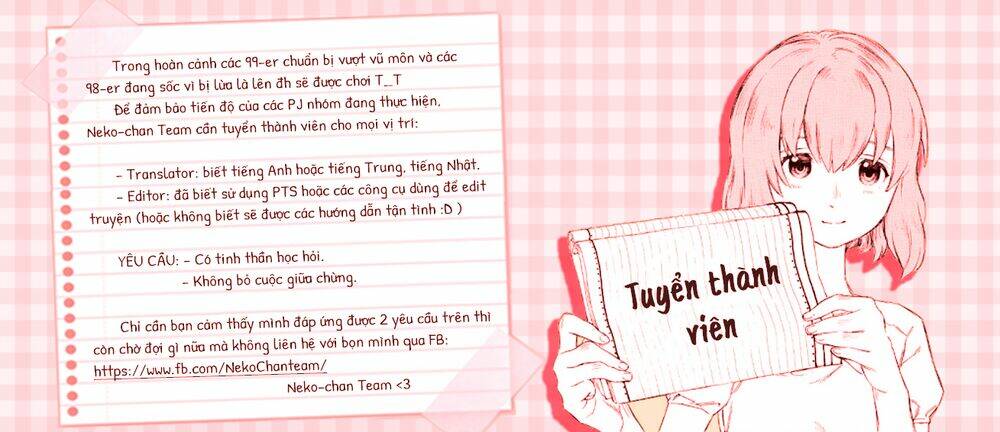 Trong hoàn cảnh các 99-er chuẩn bị vượt vũ môn và các
98-er đang sốc vì bị lừa là lên đh sẽ được chơi T_T
Để đảm bảo tiến độ của các PJ nhóm đang thực hiện,
Neko-chan Team cần tuyển thành viên cho mọi vị trí:
- Translator: biết tiếng Anh hoặc tiếng Trung, tiếng Nhật.
- Editor: đã biết sử dụng PTS hoặc các công cụ dùng để edit
truyện (hoặc không biết sẽ được các hướng dẫn tận tình :D )
YÊU CẦU: - Có tinh thần học hỏi.
- Không bỏ cuộc giữa chừng.
Chỉ cần bạn cảm thấy mình đáp ứng được 2 yêu cầu trên thì
còn chờ đợi gì nữa mà không liên hệ với bọn mình qua FB:
https://www.fb.com/NekoChanteam/
Neko-chan Team <3
Tuyển thành
viên